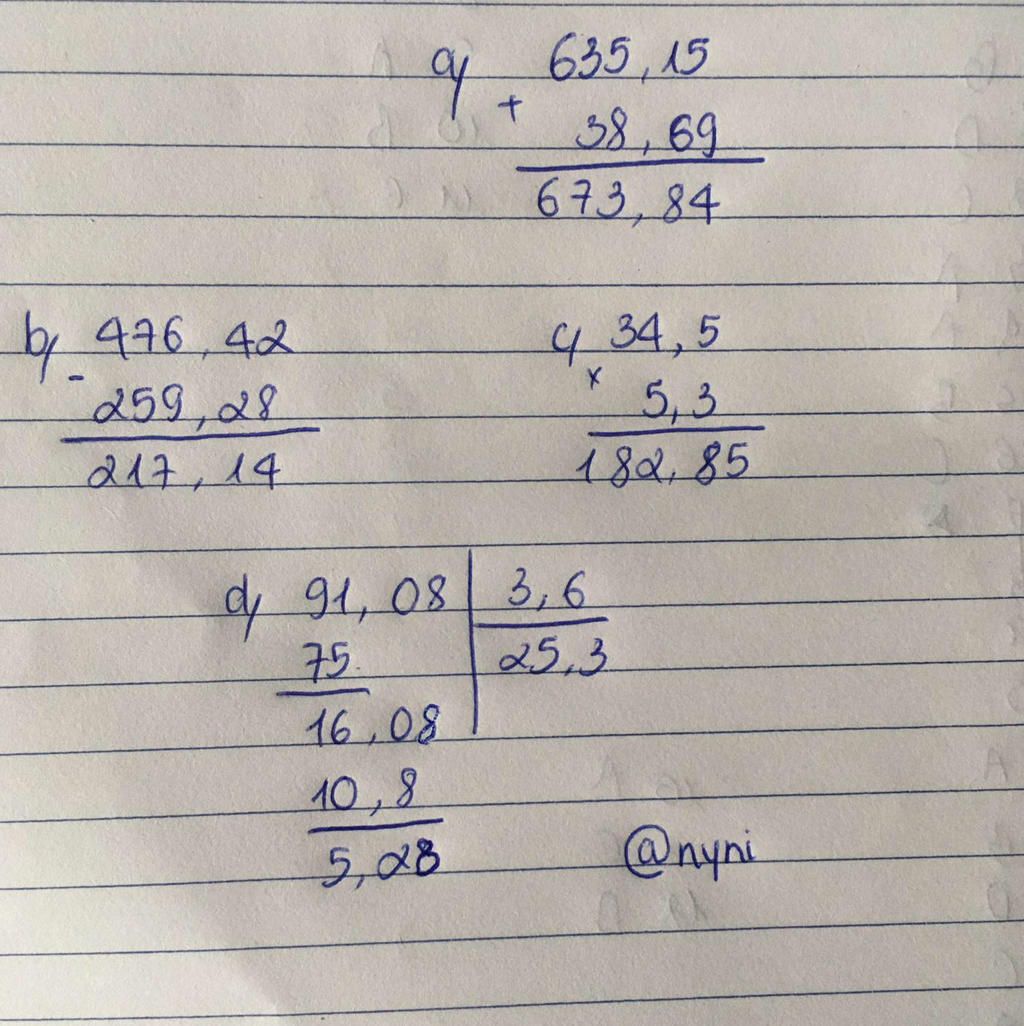 a) 635,15
+
38,69
673,84
b) 476,42
-
259,28
217,14
c) 34,5
x
5,3
182,85
d) 91,08 3,6
75 25,3
16,08
10,8
5,28
@nyni